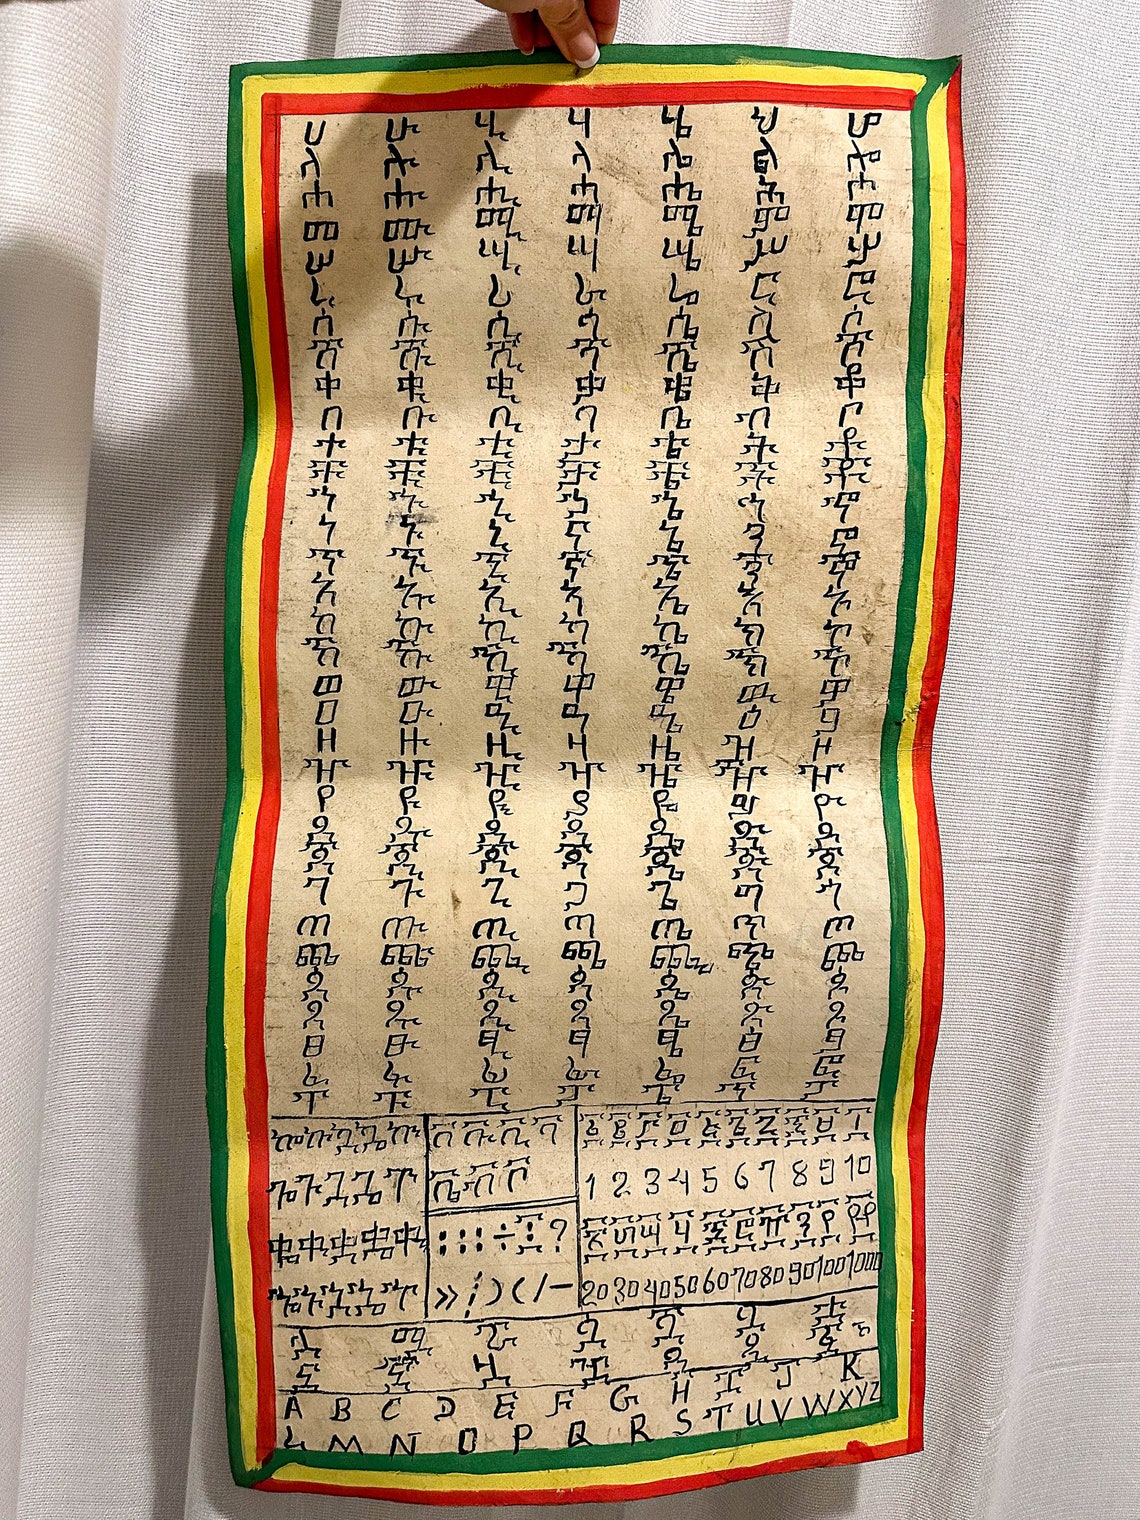 ሀ ሁ ሂ ሃ ሄ ህ ሆ
ለ ሉ ሊ ላ ሌ ል ሎ
ሐ ሑ ሒ ሓ ሔ ሕ ሖ
መ ሙ ሚ ማ ሜ ም ሞ
ሠ ሡ ሢ ሣ ሤ ሥ ሦ
ረ ሩ ሪ ራ ሬ ር ሮ
ሰ ሱ ሲ ሳ ሴ ስ ሶ
ሸ ሹ ሺ ሻ ሼ ሽ ሾ
ቀ ቁ ቂ ቃ ቄ ቅ ቆ
በ ቡ ቢ ባ ቤ ብ ቦ
ተ ቱ ቲ ታ ቴ ት ቶ
ቸ ቹ ቺ ቻ ቼ ች ቾ
ኀ ኁ ኂ ኃ ኄ ኅ ኆ
ነ ኑ ኒ ና ኔ ን ኖ
ኘ ኙ ኚ ኛ ኜ ኝ ኞ
አ ኡ ኢ ኣ ኤ እ ኦ
ከ ኩ ኪ ካ ኬ ክ ኮ
ኸ ኹ ኺ ኻ ኼ ኽ ኾ
ወ ዉ ዊ ዋ ዌ ው ዎ
ዐ ዑ ዒ ዓ ዔ ዕ ዖ
ዘ ዙ ዚ ዛ ዜ ዝ ዞ
ዠ ዡ ዢ ዣ ዤ ዥ ዦ
የ ዩ ዪ ያ ዬ ይ ዮ
ደ ዱ ዲ ዳ ዴ ድ ዶ
ጀ ጁ ጂ ጃ ጄ ጅ ጆ
ገ ጉ ጊ ጋ ጌ ግ ጎ
ጠ ጡ ጢ ጣ ጤ ጥ ጦ
ጨ ጩ ጪ ጫ ጬ ጭ ጮ
ጰ ጱ ጲ ጳ ጴ ጵ ጶ
ጸ ጹ ጺ ጻ ጼ ጽ ጾ
ፀ ፁ ፂ ፃ ፄ ፅ ፆ
ፈ ፉ ፊ ፋ ፌ ፍ ፎ
ፐ ፑ ፒ ፓ ፔ ፕ ፖ
ቨ ቩ ቪ ቫ
ቬ ቭ ቮ
፩ ፪ ፫ ፬ ፭ ፮ ፯ ፰ ፱ ፲
1 2 3 4 5 6 7 8 9 10
፳ ፴ ፵ ፶ ፷ ፸ ፹ ፺ ፻ ፼
20 30 40 50 60 70 80 90 100 1000
A B C D E F G H I J K
L M N O P Q R S T U V W X Y Z